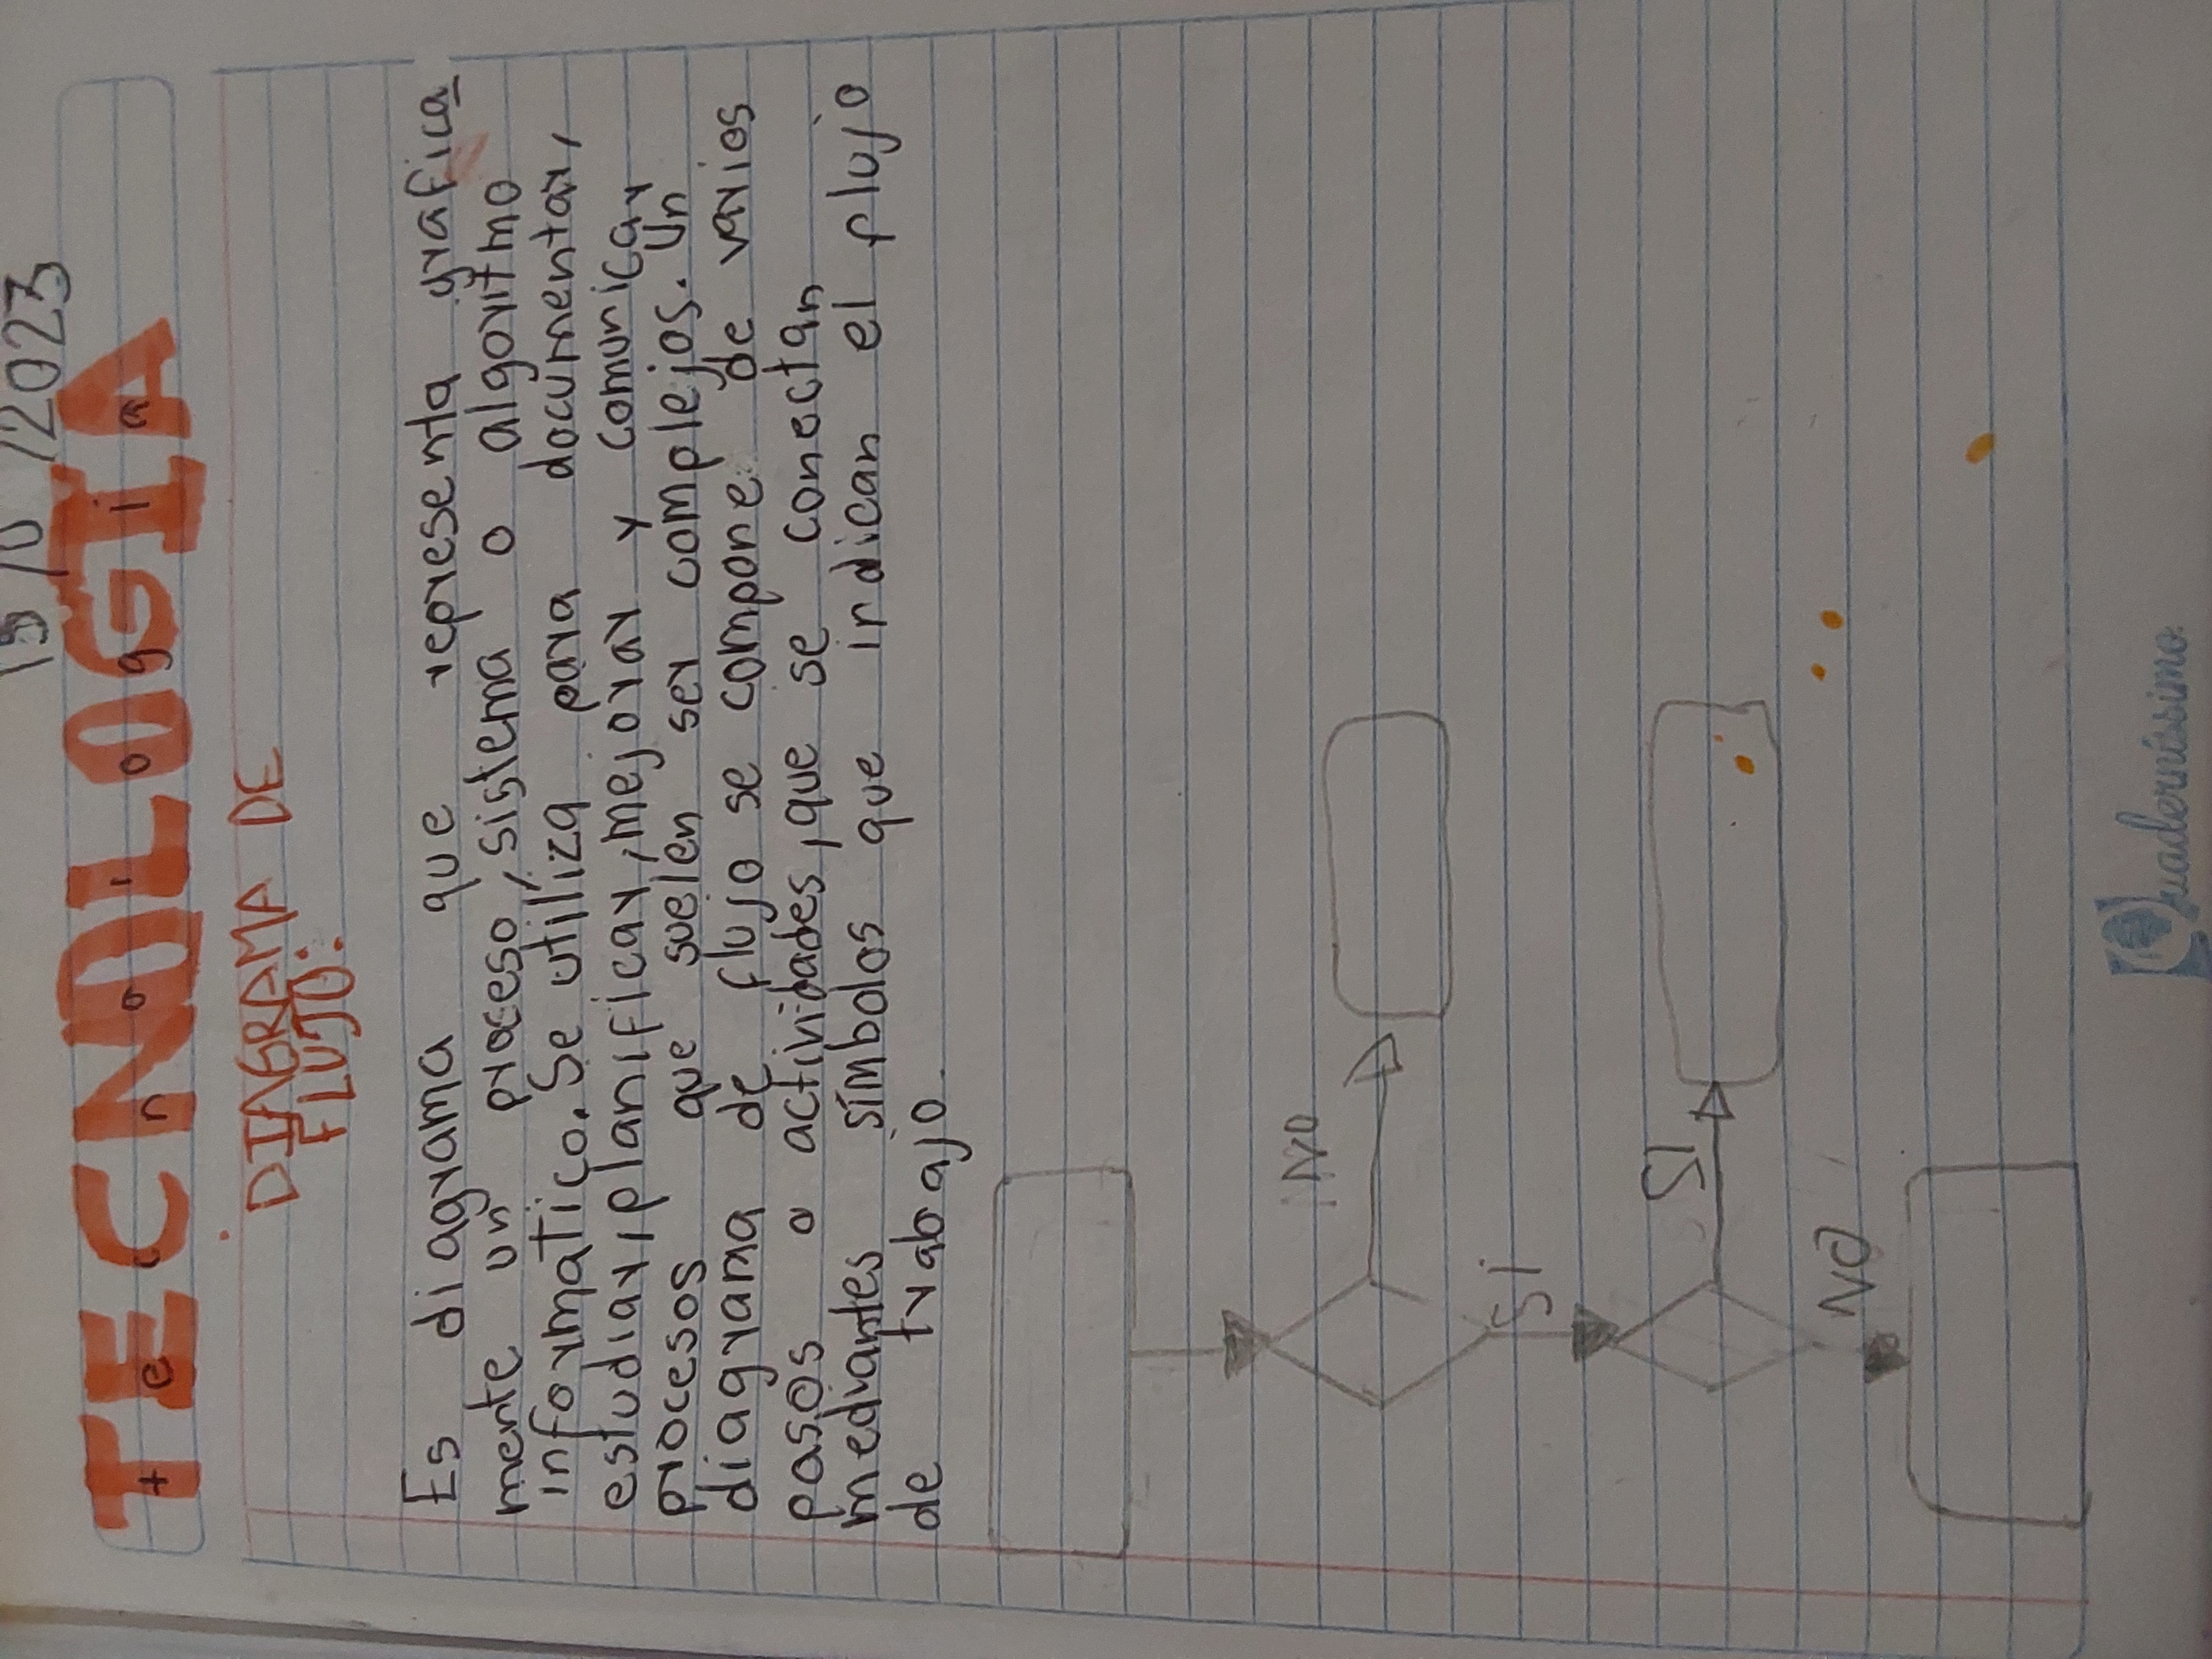 /2023
TECNOLOGIA
tecnologia
DIAGRAMA DE
FLUJO:
Es diagrama que representa grafica
mente un proceso, sistema o algoritmo
informatico. Se utiliza para documentar,
estudiar, planificar, mejorar y comunicar
procesos que suelen ser complejos. Un
diagrama de flujo se compone de varios
pasos o actividades, que se conectan
mediantes símbolos que indican el plujo
de trabajo.
NO
Si
SI
NO
Quadernissimo